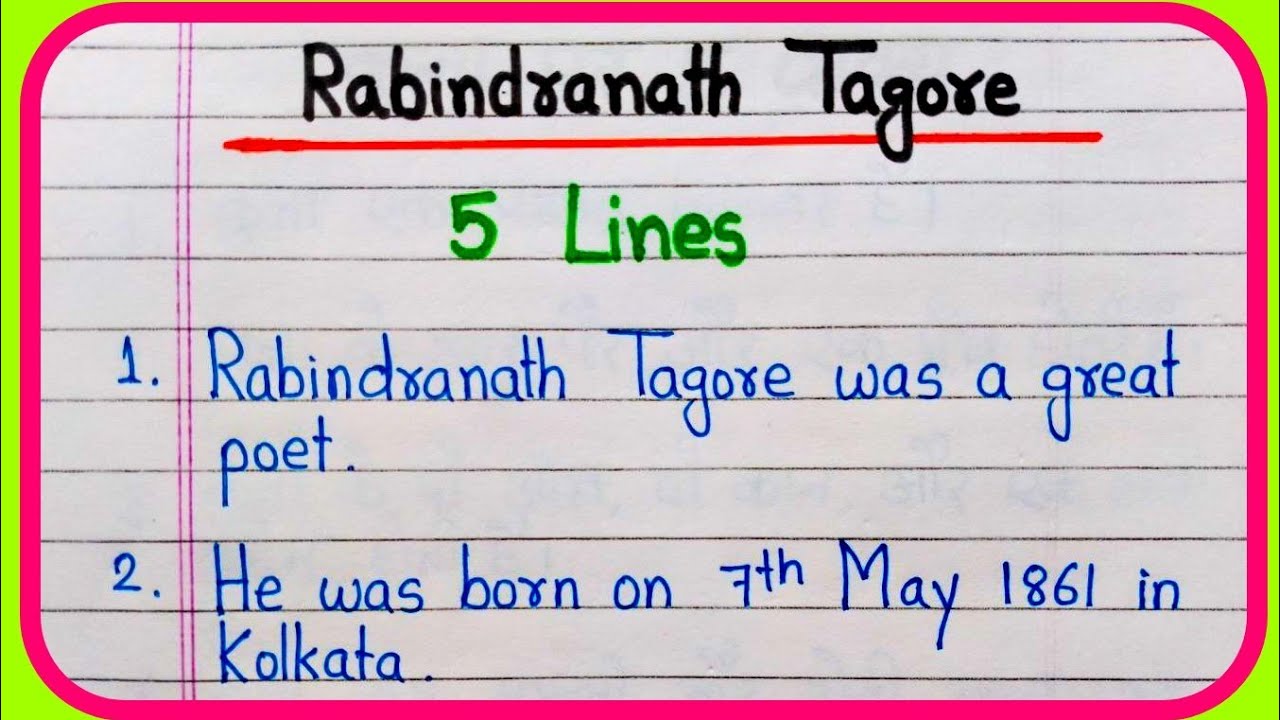 Rabindranath Tagore
5 Lines
1. Rabindranath Tagore was a great
poet.
2. He was born on 7th May 1861 in
Kolkata.